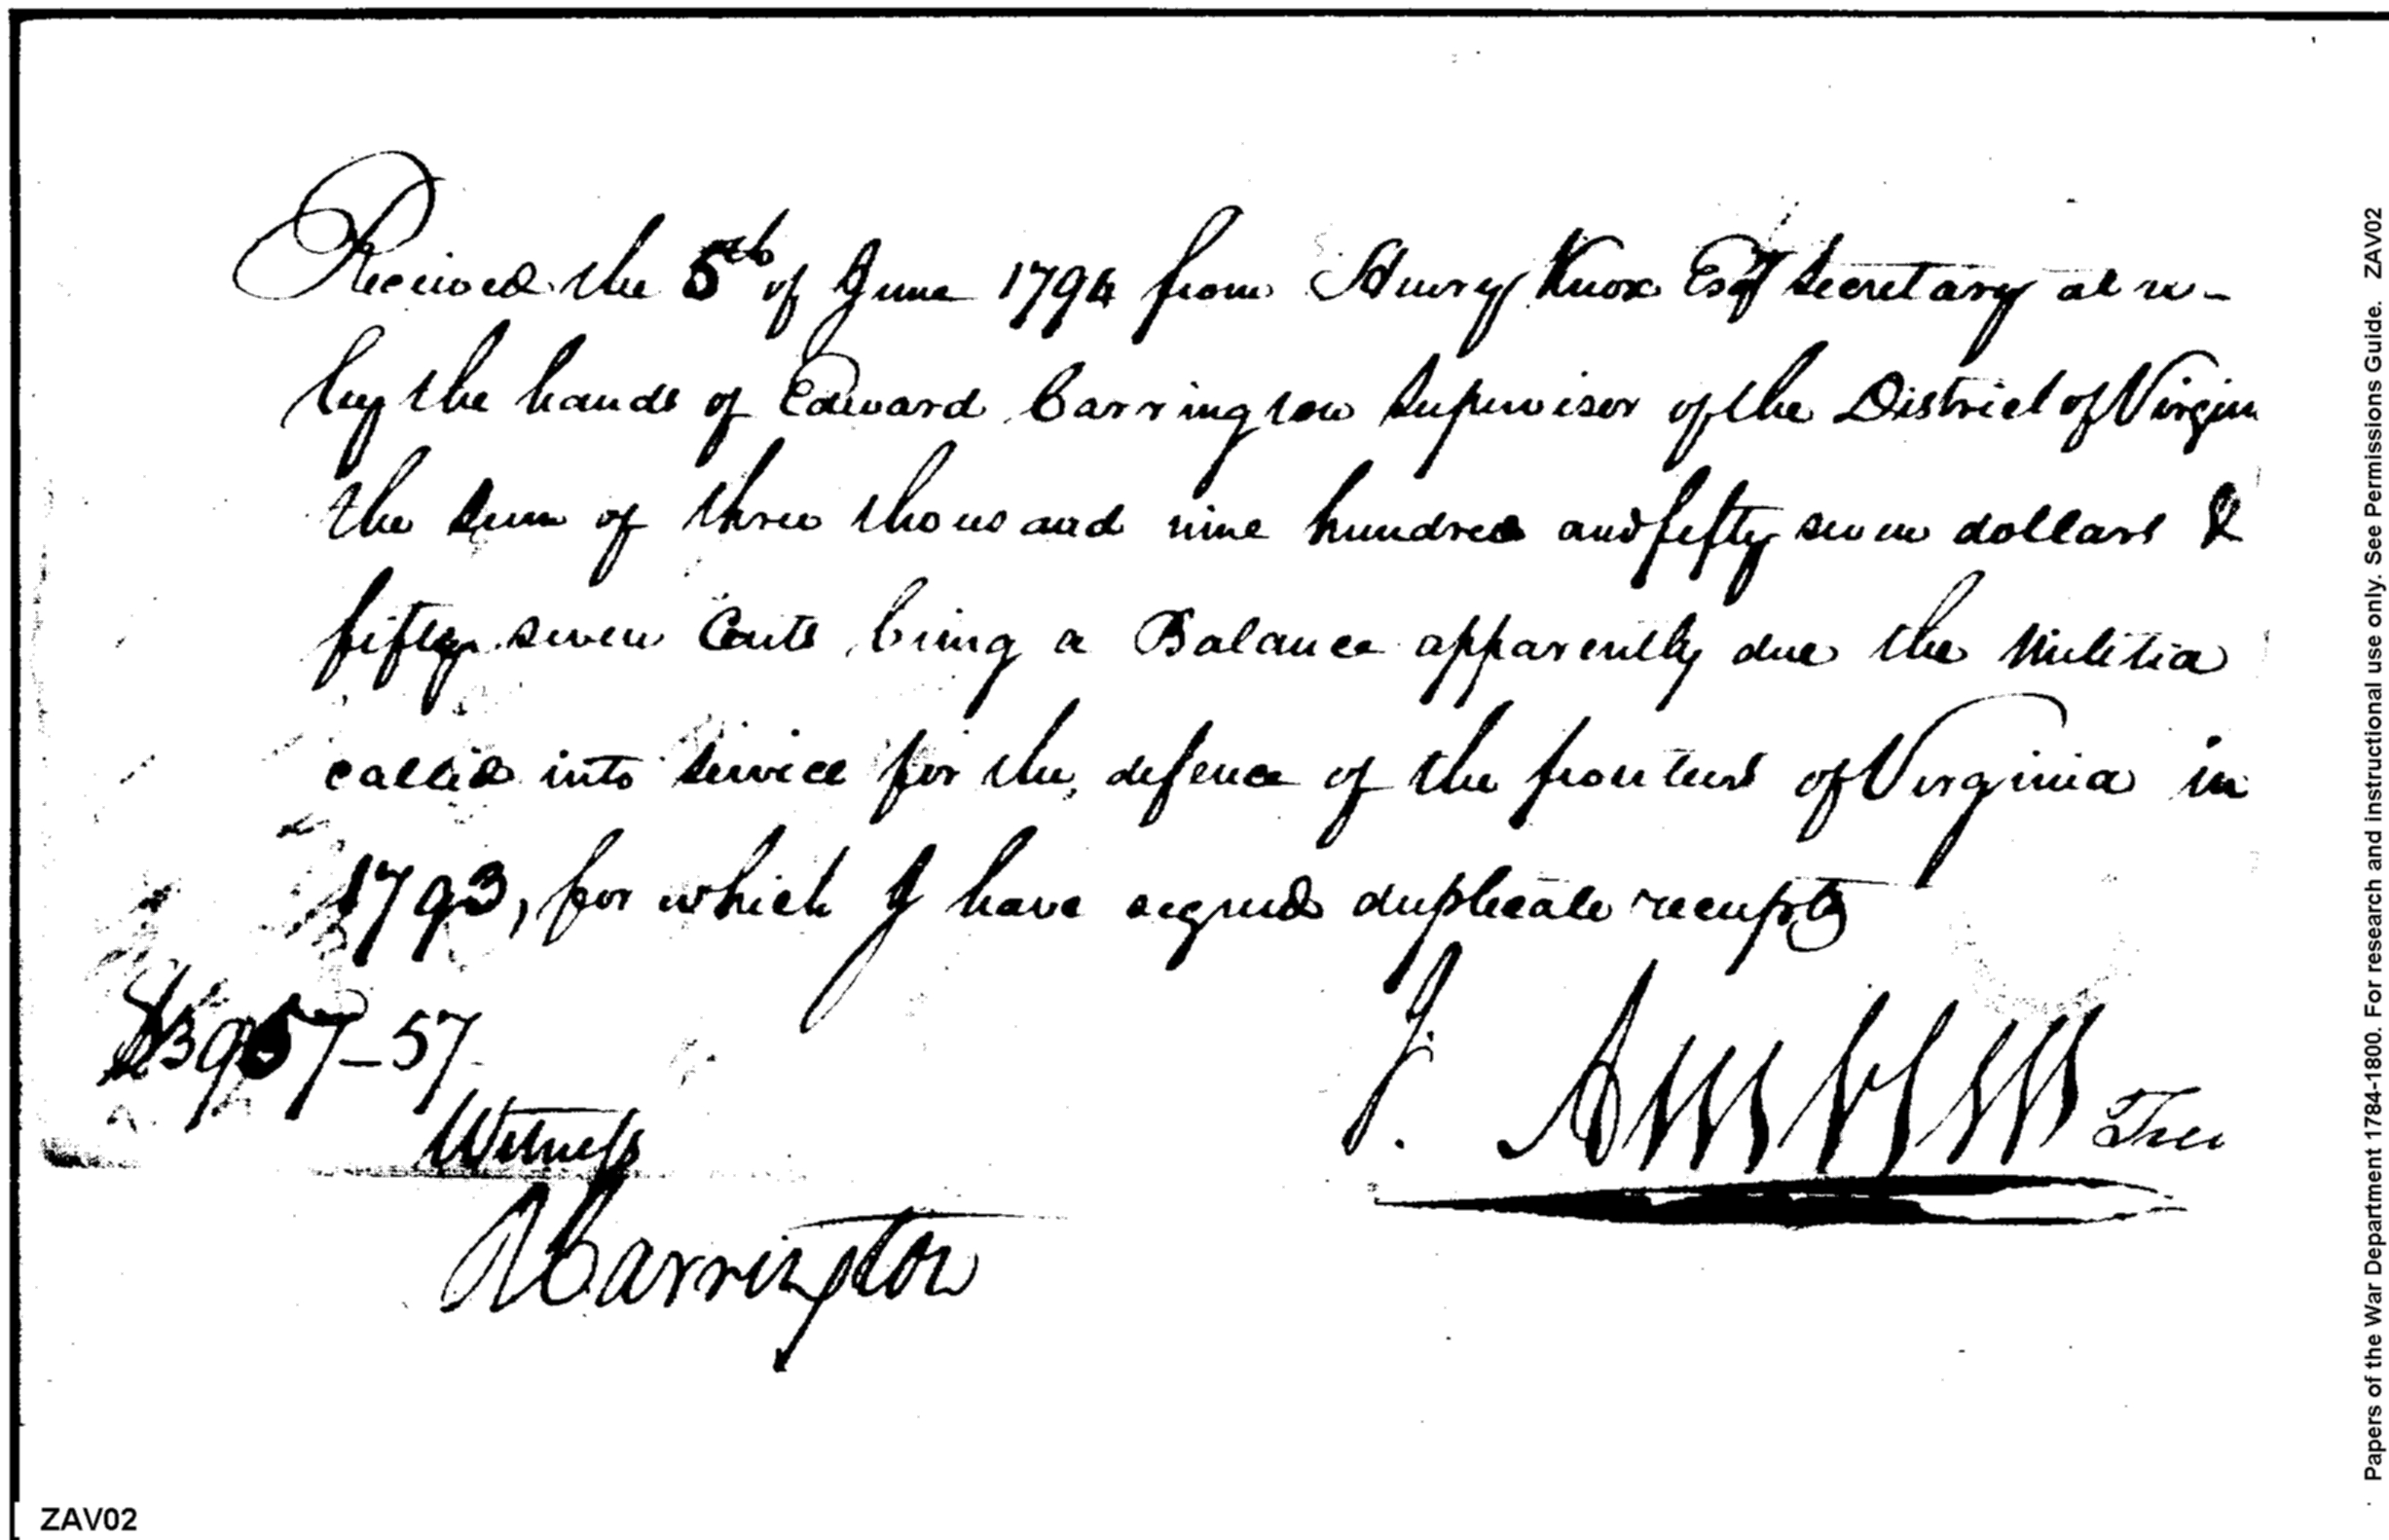 Received the 5th of June 1794 from Henry Knox Esqr Secretary at w-
by the hands of Edward Carrington Supervisor of the District of Virgini
the Sum of three thousand nine hundred and fifty seven dollars &
fifty seven Cents being a Balance apparently due the Militia
called into Service for the defence of the frontiers of Virginia in
1793, for which I have signed duplicate receipts
$3957-57
J. Ambler Trea
Witness
Carrington
ZAV02
Papers of the War Department 1784-1800. For research and instructional use only. See Permissions Guide. ZAV02